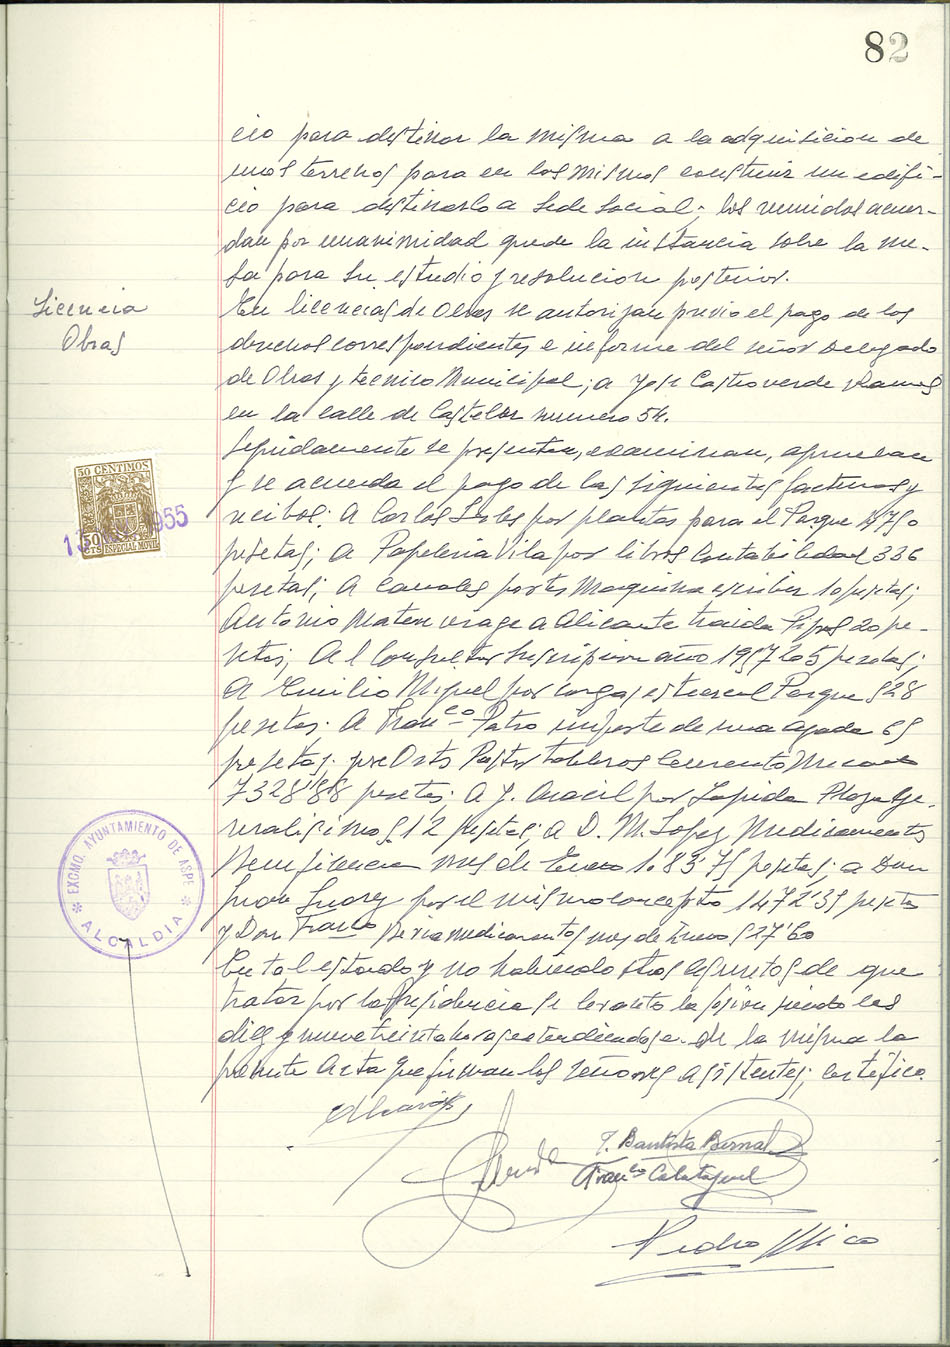 82
cio para destinar la misma a la adquisicion de
unos terrenos para en los mismos construir un edifi-
cio para destinarlo a Sede Social; los reunidos acuer-
dan por unanimidad quede la instancia sobre la me-
sa para su estudio y resolucion posterior.
Licencia
Obras
En licencias de Obras se autorizan previo el pago de los
derechos correspondientes e informe del señor Delegado
de Obras y tecnico Municipal; a Jose Castroverde Ramos
en la calle de Castelar numero 54.
Seguidamente se presentan, examinan, aprueban
y se acuerda el pago de las siguientes facturas y
recibos: A Carlos por plantas para el Parque 4,750
pesetas; A Papeleria Vila por libros Contabilidad 336
pesetas; A Canales portes Maquina escribir 10 pesetas;
Antonio Mateu viage a Alicante traida 20 pe-
setas; Al Consultor Suscripcion año 1957 265 pesetas;
A Emilio Miquel por cargas estiercol Parque 528
pesetas. A Franco Patro importe de una 65
pesetas. Orts Pastor tableros Cemento
7328'88 pesetas; A J. Aracil por Lapida Plaza Ge-
neralisimo 512 pesetas; a D. M. Lopez Medicamentos
Beneficencia mes de Enero 1.835'75 pesetas; a Don
por el mismo concepto 1472'35 pesetas
y Don Franco medicamentos mes de Enero 527'60
En tal estado y no habiendo otros asuntos de que
tratar por la Presidencia se levanto la sesion siendo las
diez y nueve treinta horas extendiendose de la misma la
presente Acta que firman los señores asistentes; certifico.
50 CENTIMOS
50 CTS ESPECIAL MOVIL
1955
EXCMO. AYUNTAMIENTO DE ASPE
ALCALDIA
T. Bautista Bernal
Franco Calatayud
Pedro Mico